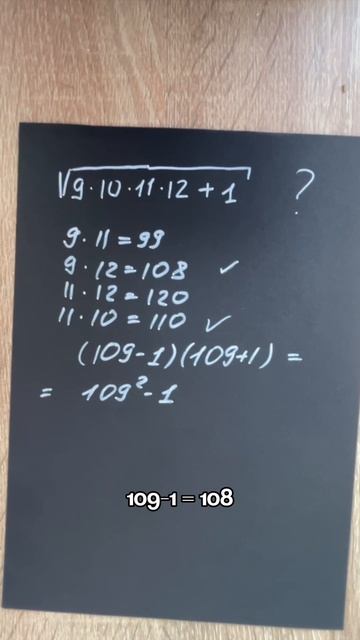 √9·10·11·12 + 1 ?
9·11=99
9·12=108 ✓
11·12=120
11·10=110 ✓
(109-1)(109+1) =
= 109²-1
109-1 = 108